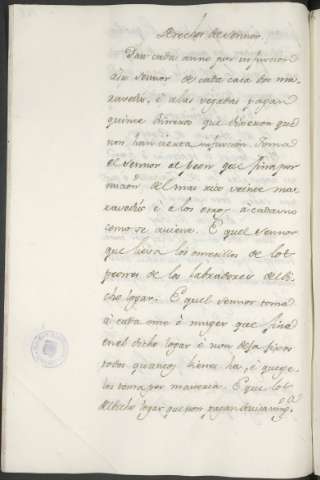 Drechos de sennor
Dan cada anno por infurcion
a su sennor de cada casa dos ma
ravedis, é a las vegadas pagan
quince dineros que dixeron que
non han cierta infurcion. E toma
el sennor al peon que fina por
nuncion del mas rico veinte ma
ravedis é a los otros a cada uno
como se aviene. E quel sennor
que lieva los omecillos de los
peones de los labradores del di
cho logar. E quel sennor toma
á cada ome é muger que fina
en el dicho logar é non deja fijos
todos quantos bienes ha, é que ge
los toma por maneria. E que los
del dicho logar que non pagan